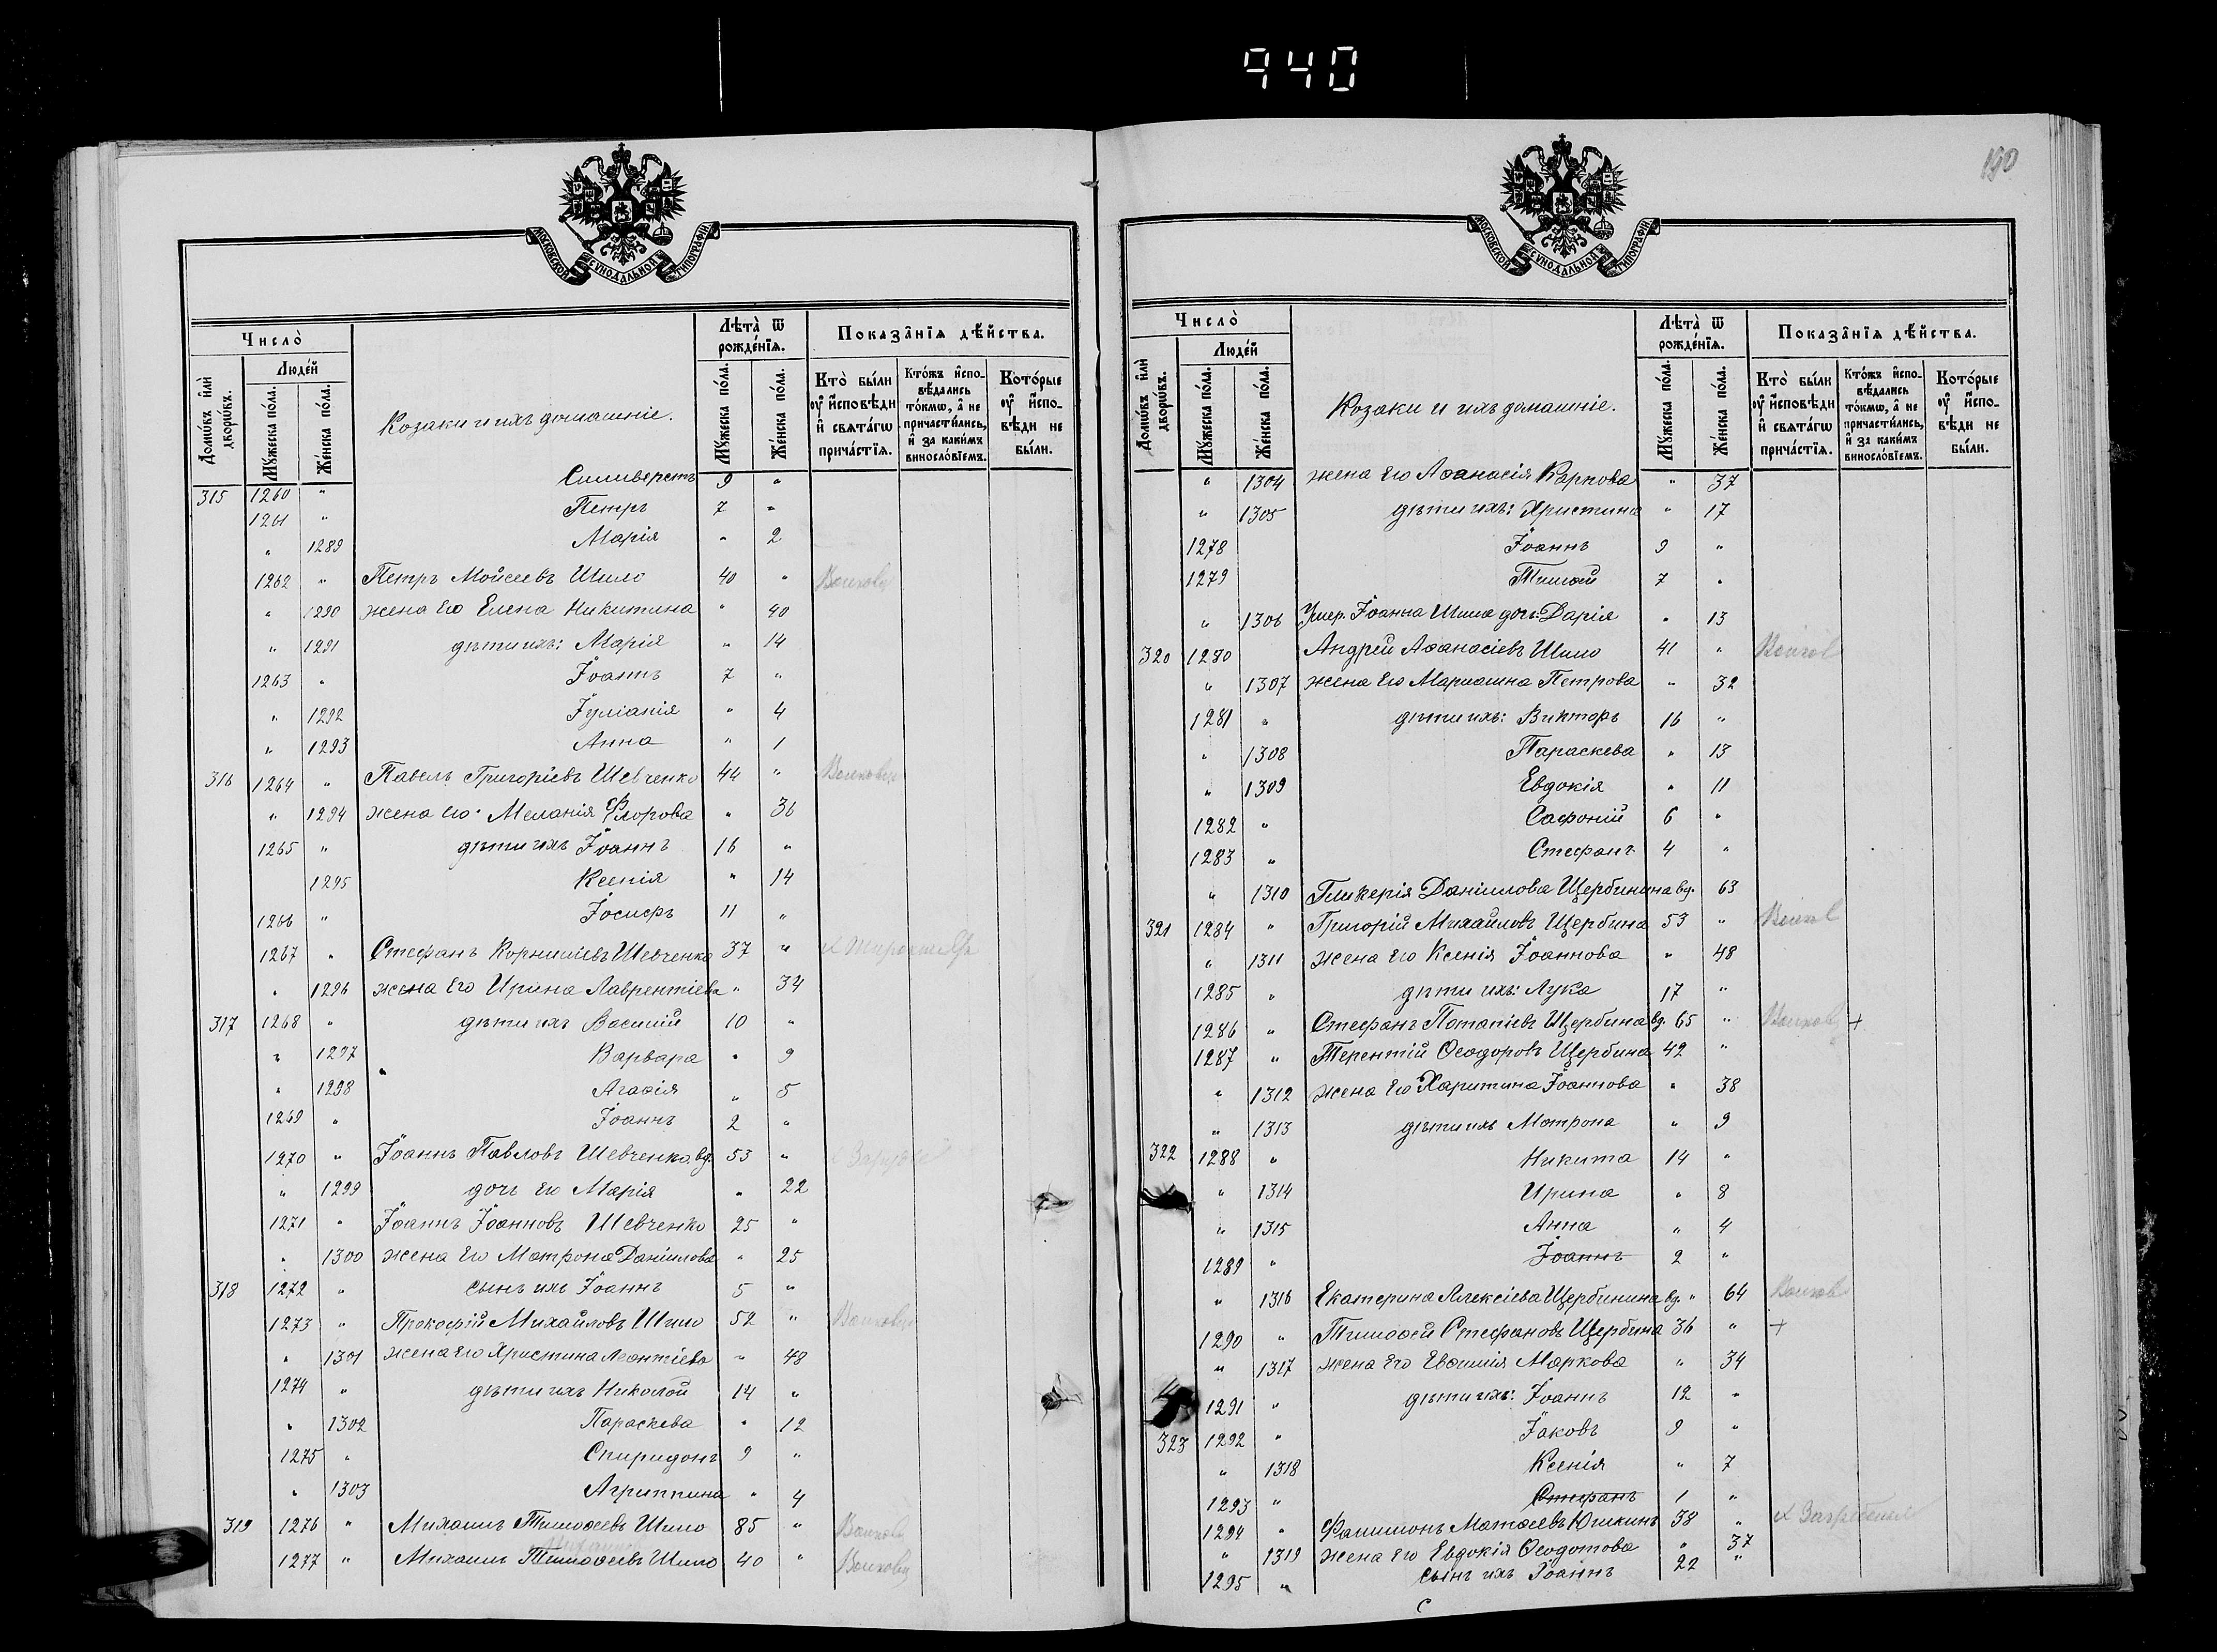 940
МОСКОВСКОЙ СѴНОДАЛЬНОЙ ТИПОГРАФІИ.
Число̀
Домѡ́въ и҆лѝ дворѡ́въ.
Люде́й
Му́жеска по́ла.
Же́нска по́ла.
Козаки и ихъ домашніе.
Лѣта̀ ѿ рожде́нїѧ.
Му́жеска по́ла.
Же́нска по́ла.
Показа̑нїѧ дѣ́йства.
Кто̀ бы́ли оу҆ и҆сповѣди и҆ свѧта́гѡ прича́стїѧ.
Кто́жъ и҆сповѣ́дались то́кмѡ, а҆ не причасти́лись, и҆ за каки́мъ виносло́вїемъ.
Кото́рые оу҆ и҆сповѣди не бы́ли.
315 1260 " Сильверстъ 9 "
1261 " Петръ 7 "
" 1289 Марія " 2
1262 " Петръ Мойсеевъ Шило 40 "
" 1290 жена его Елена Никитина " 40
" 1291 дѣти ихъ: Марія " 14
1263 " Іоаннъ 7 "
" 1292 Іуліанія " 4
" 1293 Анна " 1
316 1264 " Павелъ Григоріевъ Шевченко 44 "
" 1294 жена его Меланія Флорова " 36
1265 " дѣти ихъ Іоаннъ 16 "
1295 Ксенія " 14
1266 " Іосифъ 11 "
1267 " Стефанъ Корниліевъ Шевченко 37 "
" 1296 жена его Ирина Лаврентіева " 34
317 1268 " дѣти ихъ Василій 10 "
" 1297 Варвара " 9
" 1298 Агафія " 5
1269 " Іоаннъ 2 "
1270 " Іоаннъ Павловъ Шевченко, вд. 53 "
" 1299 дочь его Марія " 22
1271 " Іоаннъ Іоанновъ Шевченко 25 "
" 1300 жена его Матрона Даніилова " 25
318 1272 " сынъ ихъ Іоаннъ 5 "
1273 " Прокофій Михайловъ Шило 52 "
" 1301 жена его Христина Леонтіева " 48
1274 " дѣти ихъ Николай 14 "
" 1302 Параскева " 12
1275 " Спиридонъ 9 "
" 1303 Агриппина " 4
319 1276 " Михаилъ Тимоѳеевъ Шило 85 "
1277 " Михаилъ Тимоѳеевъ Шило 40 "
190
МОСКОВСКОЙ СѴНОДАЛЬНОЙ ТИПОГРАФІИ.
Число̀
Домѡ́въ и҆лѝ дворѡ́въ.
Люде́й
Му́жеска по́ла.
Же́нска по́ла.
Козаки и ихъ домашніе.
Лѣта̀ ѿ рожде́нїѧ.
Му́жеска по́ла.
Же́нска по́ла.
Показа̑нїѧ дѣ́йства.
Кто̀ бы́ли оу҆ и҆сповѣди и҆ свѧта́гѡ прича́стїѧ.
Кто́жъ и҆сповѣ́дались то́кмѡ, а҆ не причасти́лись, и҆ за каки́мъ виносло́вїемъ.
Кото́рые оу҆ и҆сповѣди не бы́ли.
" 1304 жена его Аѳанасія Карпова " 37
" 1305 дѣти ихъ: Христина " 17
1278 Іоаннъ 9 "
1279 Тимоѳей 7 "
" 1306 Умер. Іоанна Шила дочь Дарія " 13
320 1280 Андрей Аѳанасіевъ Шило 41 "
" 1307 жена его Маріамна Петрова " 32
1281 " дѣти ихъ: Викторъ 16 "
" 1308 Параскева " 13
" 1309 Евдокія " 11
1282 " Сафоній 6 "
1283 " Стефанъ 4 "
" 1310 Гликерія Даніилова Щербинина вд. 63
321 1284 " Григорій Михайловъ Щербина 53 "
" 1311 жена его Ксенія Іоаннова " 48
1285 " дѣти ихъ: Лука 17 "
1286 " Стефанъ Потапіевъ Щербина вд. 65 " +
1287 " Терентій Ѳеодоровъ Щербина 42 "
" 1312 жена его Харитина Іоаннова " 38
" 1313 дѣти ихъ Матрона " 9
322 1288 " Никита 14 "
" 1314 Ирина " 8
" 1315 Анна " 4
1289 " Іоаннъ 2 "
" 1316 Екатерина Алексіева Щербинина вд. " 64
1290 " Тимоѳей Стефановъ Щербина 36 " +
" 1317 жена его Евфимія Маркова " 34
1291 " дѣти ихъ: Іоаннъ 12 "
323 1292 " Іаковъ 9 "
" 1318 Ксенія " 7
1293 " Стефанъ 1 "
1294 " Филимонъ Матѳеевъ Юшкинъ 38 "
" 1319 жена его Евдокія Ѳеодотова " 37
1295 " сынъ ихъ Іоаннъ 22 "